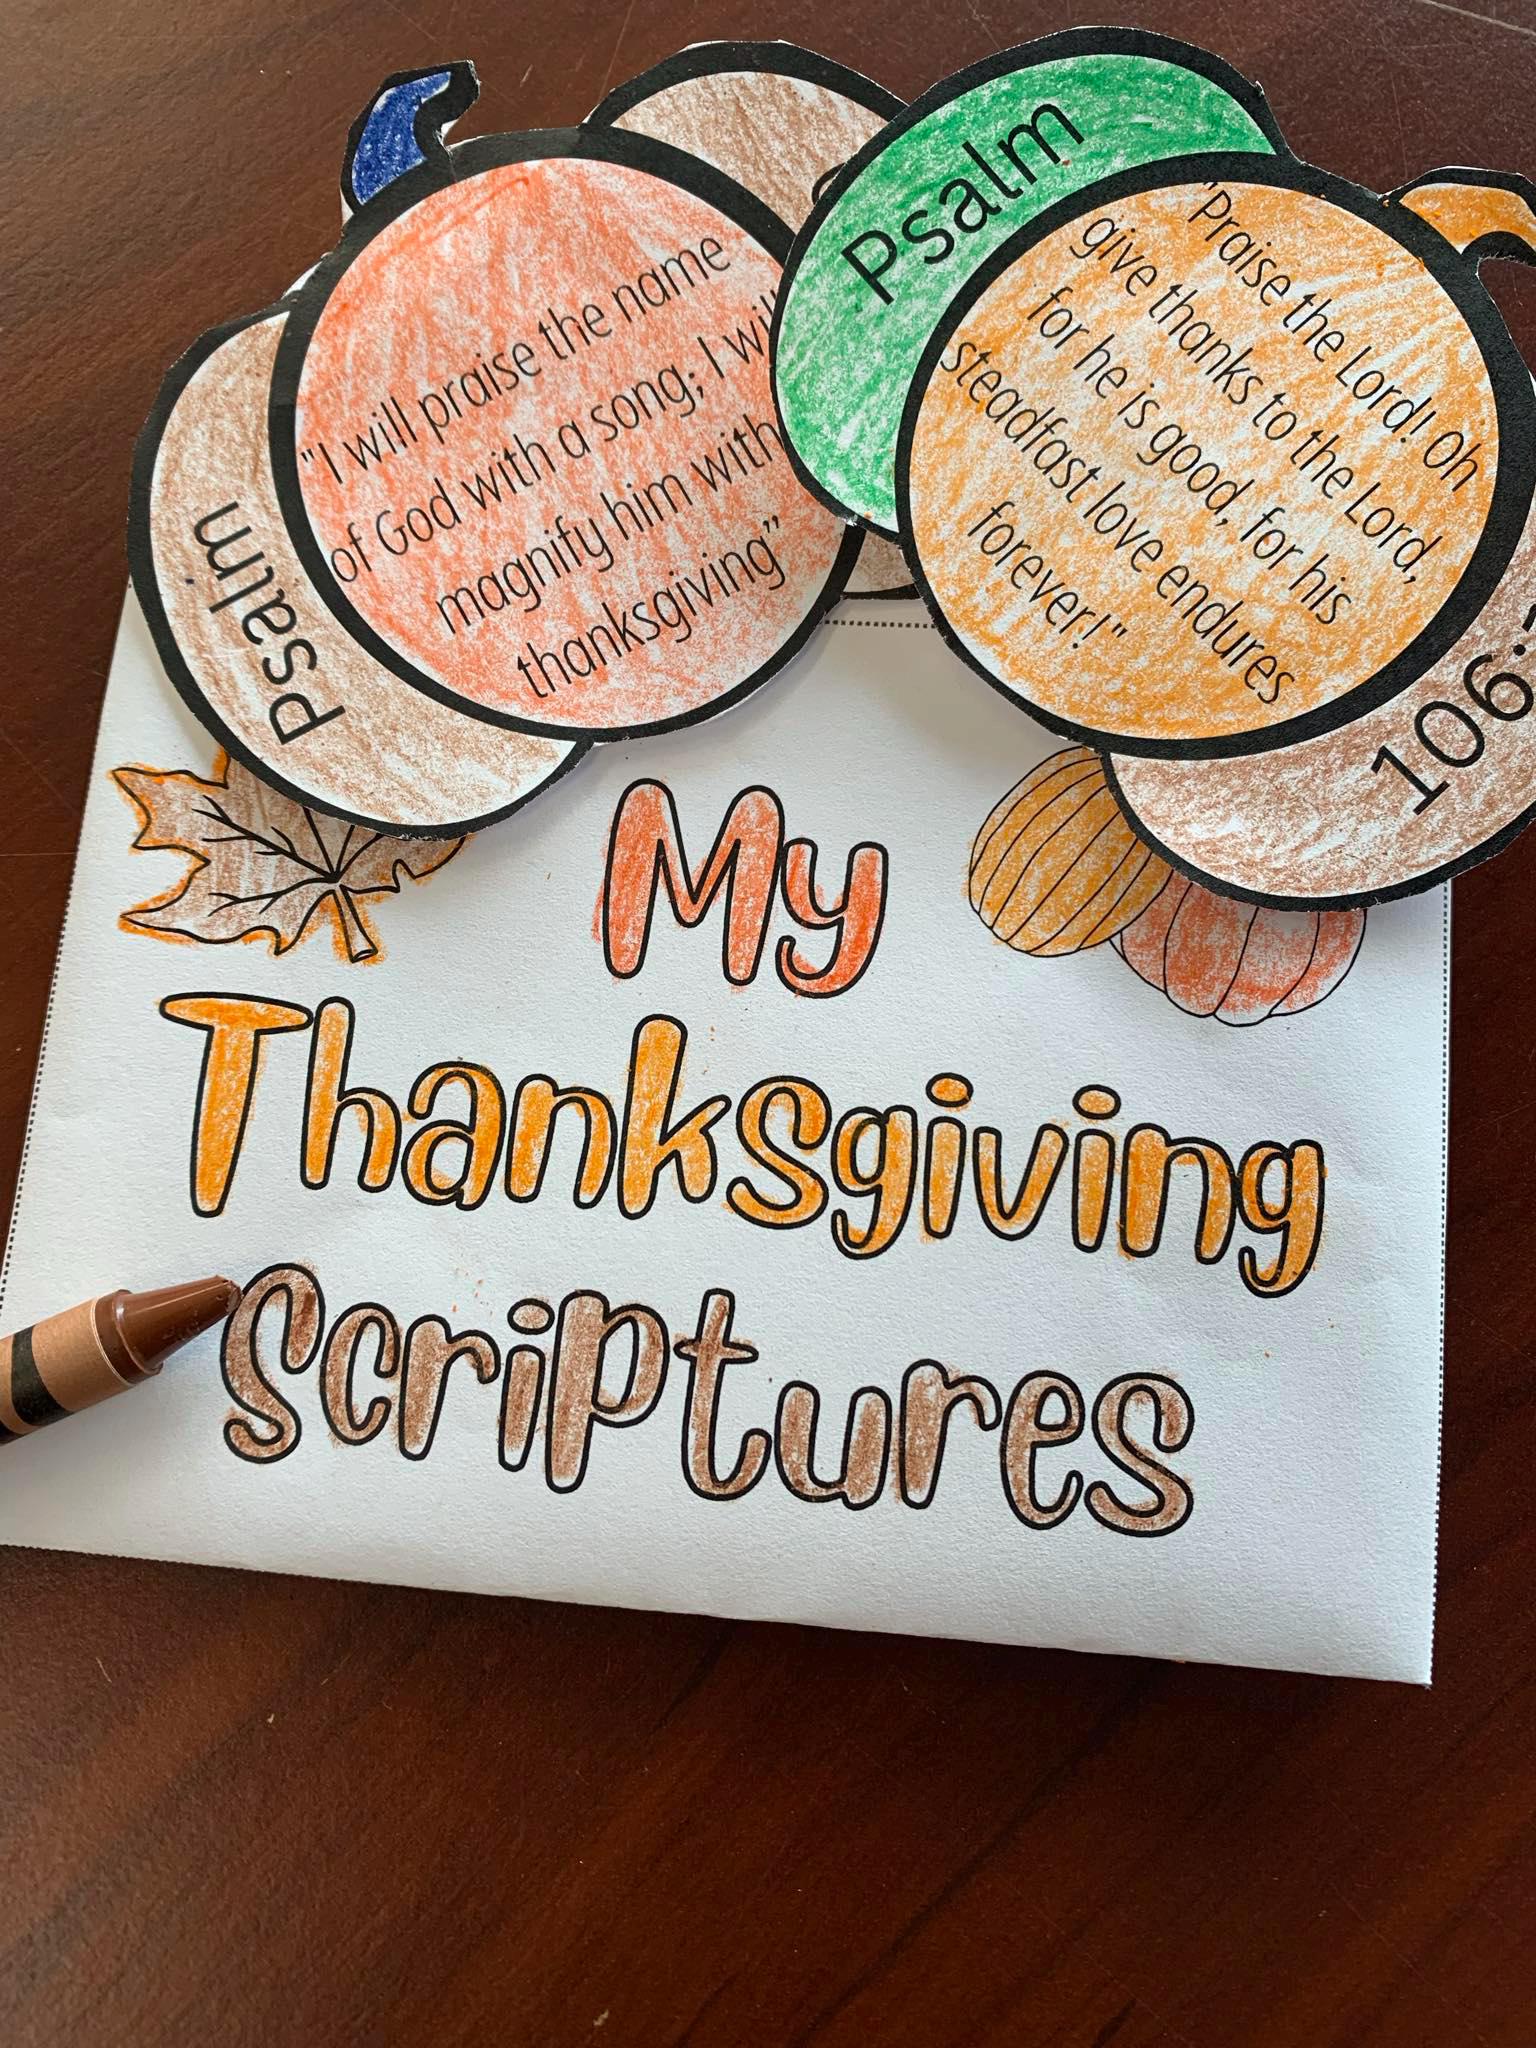 Psalm
"I will praise the name
of God with a song; I will
magnify him with
thanksgiving"
Psalm
"Praise the Lord! Oh
give thanks to the Lord,
for he is good, for his
steadfast love endures
forever!"
106:
My
Thanksgiving
Scriptures